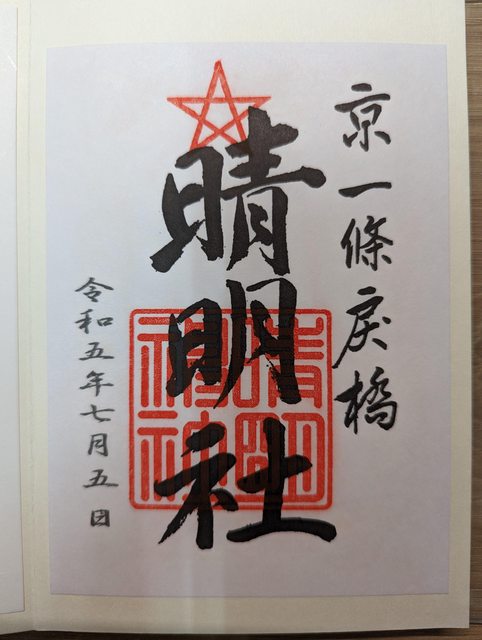 京一條戻橋
晴明社
令和五年七月五日